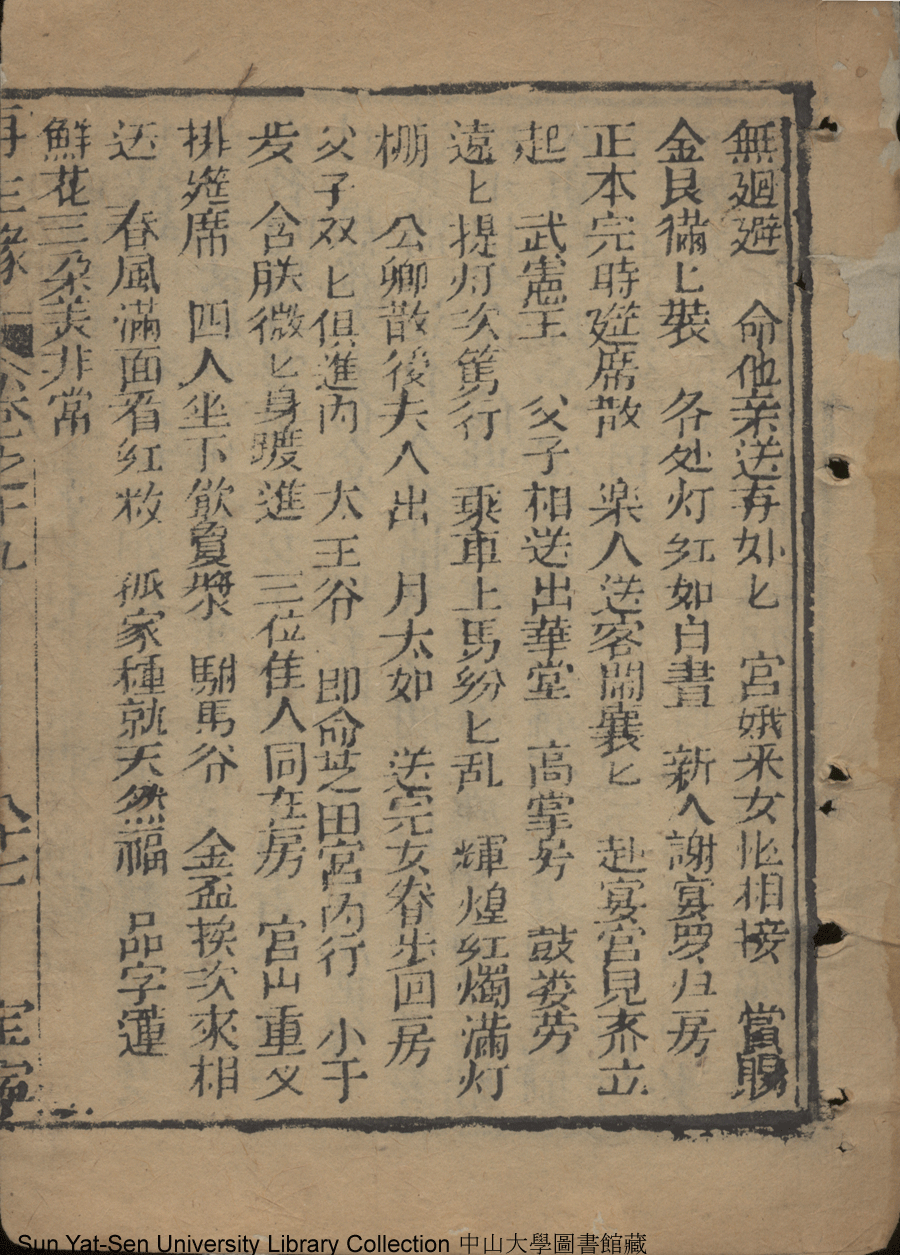 無廻避　命他亲送再如匕　宮娥采女比相接　當賜
金艮備匕裝　各处灯红如白晝　新人謝宴罗归房
正本完時筵席散　楽人送客鬧襄匕　赴宴官見齐立
起　武憲王　父子相送出華堂　高掌号　鼓娄劳
遠匕提灯次篤行　乘車上馬纷匕乱　輝煌红燭滿灯
棚　公卿散後夫人出　月太如　送完女眷步回房
父子双匕俱進内　太王爷　即命芝田宮内行　小于
步　含朕微匕身踱進　三位佳人同在房　官山重又
排筵席　四人坐下飲負漿　駙馬爷　金盃挨次來相
送　春風滿面看红妝　孤家種就天然福　品字蓮
鮮花三朵美非常
再生緣　卷之十九　八十七　宝寧
Sun Yat-Sen University Library Collection 中山大學圖書館藏